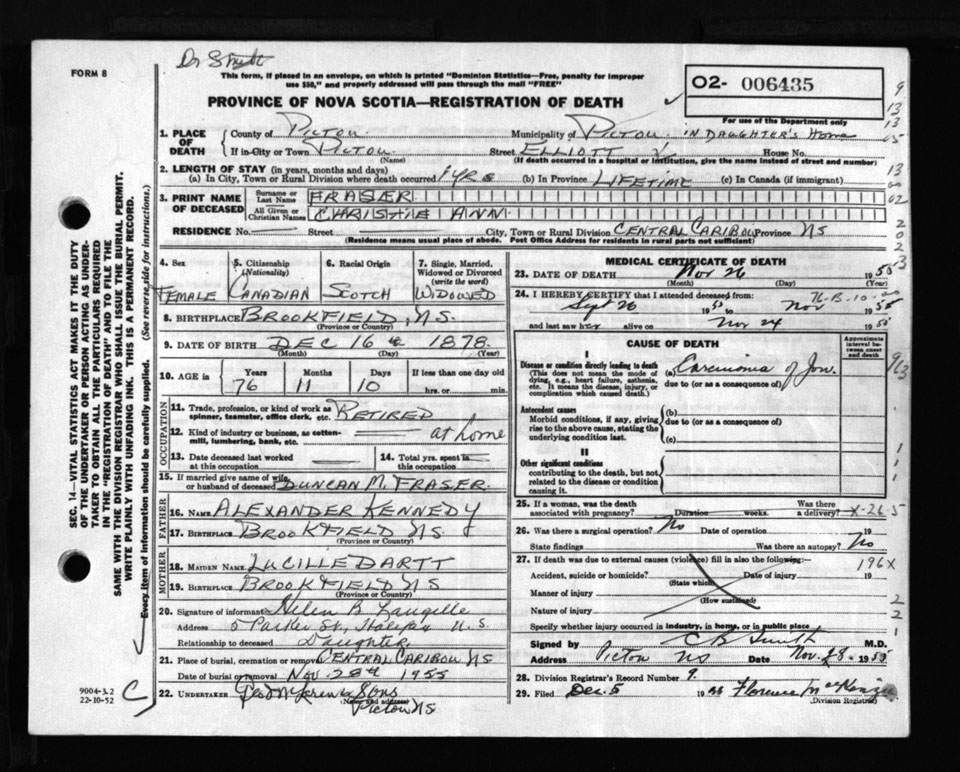 Dr Smith
FORM 8
This form, if placed in an envelope, on which is printed "Dominion Statistics—Free, penalty for improper
use $50," and properly addressed will pass through the mail "FREE"
PROVINCE OF NOVA SCOTIA—REGISTRATION OF DEATH
O2- 006435
For use of the Department only
1. PLACE OF DEATH
County of Pictou Municipality of Pictou IN DAUGHTER'S HOME
If in City or Town Pictou Street ELLIOTT House No.
(Name) (If death occurred in a hospital or institution, give the name instead of street and number)
2. LENGTH OF STAY (in years, months and days)
(a) In City, Town or Rural Division where death occurred 1 YRS (b) In Province LIFETIME (c) In Canada (if immigrant)
3. PRINT NAME OF DECEASED
Surname or Last Name FRASER
All Given or Christian Names CHRISTINE ANN
RESIDENCE No. — Street — City, Town or Rural Division CENTRAL CARIBOU Province NS
(Residence means usual place of abode. Post Office Address for residents in rural parts not sufficient)
4. Sex FEMALE
5. Citizenship (Nationality) CANADIAN
6. Racial Origin SCOTCH
7. Single, Married, Widowed or Divorced (write the word) WIDOWED
8. BIRTHPLACE BROOKFIELD, N.S.
(Province or Country)
9. DATE OF BIRTH DEC 16th 1878
(Month) (Day) (Year)
10. AGE in Years 76 Months 11 Days 10 If less than one day old hrs. or min.
OCCUPATION
11. Trade, profession or kind of work as spinner, teamster, office clerk, etc. RETIRED
12. Kind of industry or business, as cotton-mill, lumbering, bank, etc. — at home
13. Date deceased last worked at this occupation —
14. Total yrs. spent in this occupation —
15. If married give name of wife or husband of deceased DUNCAN M. FRASER
FATHER
16. NAME ALEXANDER KENNEDY
17. BIRTHPLACE BROOKFIELD NS.
(Province or Country)
MOTHER
18. MAIDEN NAME LUCILLE DARTT
19. BIRTHPLACE BROOKFIELD NS
(Province or Country)
20. Signature of informant Helen B Langille
Address 5 Parker St., Halifax N.S.
Relationship to deceased Daughter
21. Place of burial, cremation or removal CENTRAL CARIBOU NS
Date of burial or removal Nov 28th 1955
22. UNDERTAKER & Sons
(Name and address) Pictou NS
MEDICAL CERTIFICATE OF DEATH
23. DATE OF DEATH Nov 26 1955
(Month) (Day) (Year)
24. I HEREBY CERTIFY that I attended deceased from:
76-B-10-
Sept 26 1955 to Nov 1955
and last saw her alive on Nov 24 1955
CAUSE OF DEATH
Approximate interval between onset and death
I
Disease or condition directly leading to death
(This does not mean the mode of dying, e.g., heart failure, asthenia, etc. It means the disease, injury, or complication which caused death.)
(a) Carcinoma of Jaw. 963
due to (or as a consequence of)
Antecedent causes
Morbid conditions, if any, giving rise to the above cause, stating the underlying condition last.
(b)
due to (or as a consequence of)
(c)
II
Other significant conditions
contributing to the death, but not related to the disease or condition causing it.
25. If a woman, was the death associated with pregnancy? Duration weeks. Was there a delivery? X-26-5
26. Was there a surgical operation? No Date of operation 19
State findings Was there an autopsy? No
27. If death was due to external causes (violence) fill in also the following:— 196X
Accident, suicide or homicide? Date of injury 19
(State which)
Manner of injury
(How sustained)
Nature of injury
Specify whether injury occurred in industry, in home, or in public place
Signed by C B Smith M.D.
Address Pictou NS Date Nov. 28 1955
28. Division Registrar's Record Number 9.
29. Filed Dec. 5 19 Florence McKenzie
(Division Registrar)
SEC. 14—VITAL STATISTICS ACT MAKES IT THE DUTY
OF THE UNDERTAKER OR PERSON ACTING AS UNDER-
TAKER TO OBTAIN ALL THE PARTICULARS REQUIRED
IN THE "REGISTRATION OF DEATH" AND TO FILE THE
SAME WITH THE DIVISION REGISTRAR WHO SHALL ISSUE THE BURIAL PERMIT.
WRITE PLAINLY WITH UNFADING INK. THIS IS A PERMANENT RECORD.
Every item of information should be carefully supplied. (See reverse side for instructions.)
9004-3.2
22-10-52
C